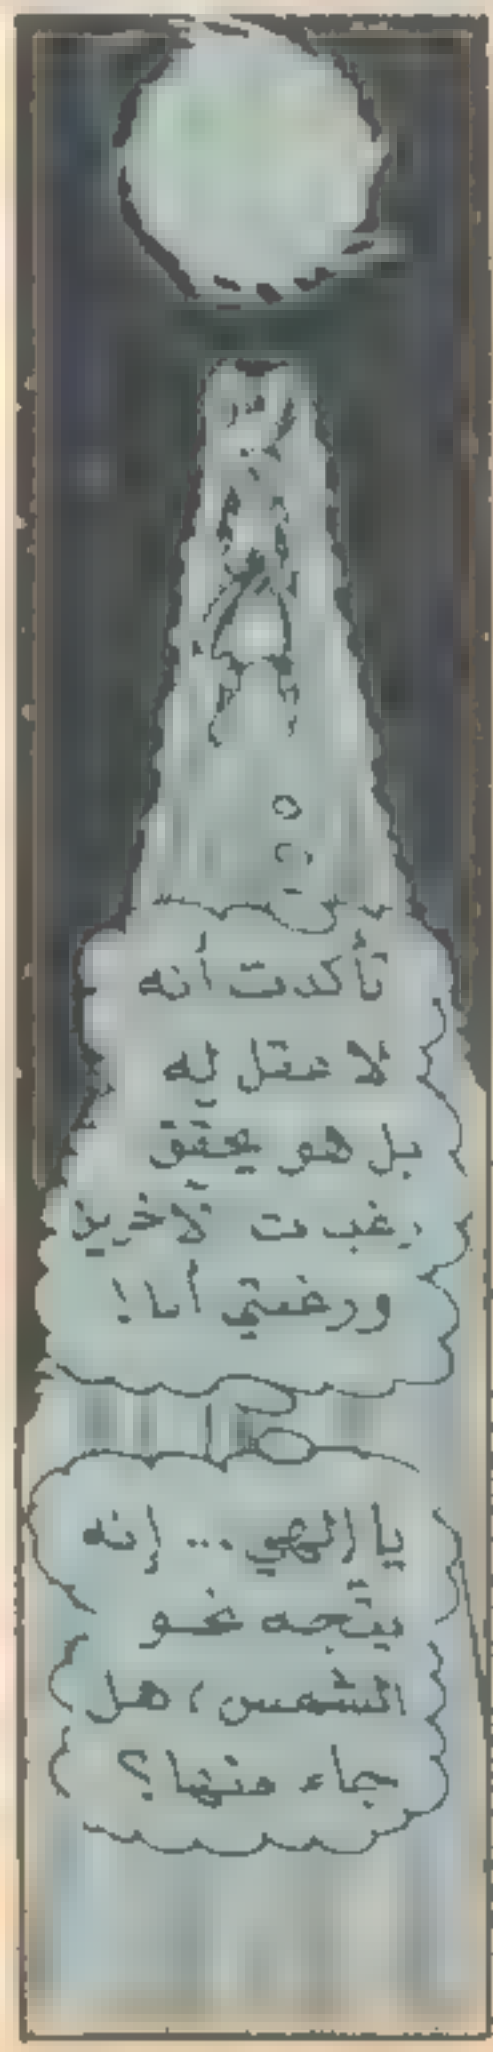 تأكدت أنه
لا عقل له
بل هو يحقق
رغبات الآخرين
ورغبتي أنا!
يا إلهي... إنه
يتجه نحو
الشمس، هل
جاء منها؟